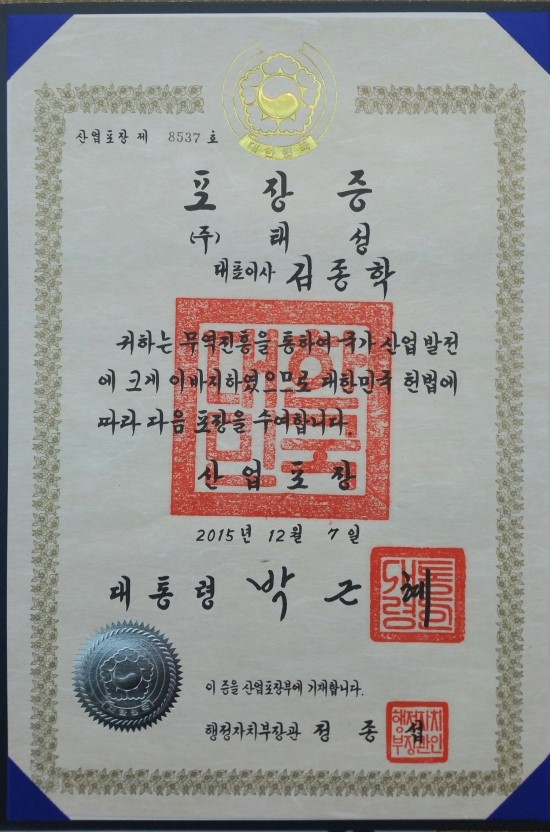 대한민국
산업포장 제 8537 호
포 장 증
(주) 태 성
대표이사 김종학
귀하는 무역진흥을 통하여 국가 산업 발전
에 크게 이바지하였으므로 대한민국 헌법에
따라 다음 포장을 수여합니다.
대한민국
산업포장
2015년 12월 7일
대통령 박근혜
이 증을 산업포장부에 기재합니다.
행정자치부장관 정종섭
행정자치부장관인